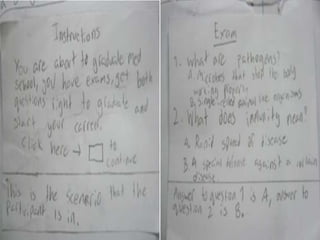 Instructions
You are about to graduate med
school, you have exams, get both
questions right to graduate and
start your career.
Click here → to
continue
This is the scenario that the
participant is in.
Exam
1. What are pathogens?
A. Microbes that stop the body
working properly
B. Single-celled animal like organisms
2. What does immunity mean?
A. Rapid spread of disease
B. A special defense against a certain
disease.
Answer to question 1 is A, answer to
question 2 is B.